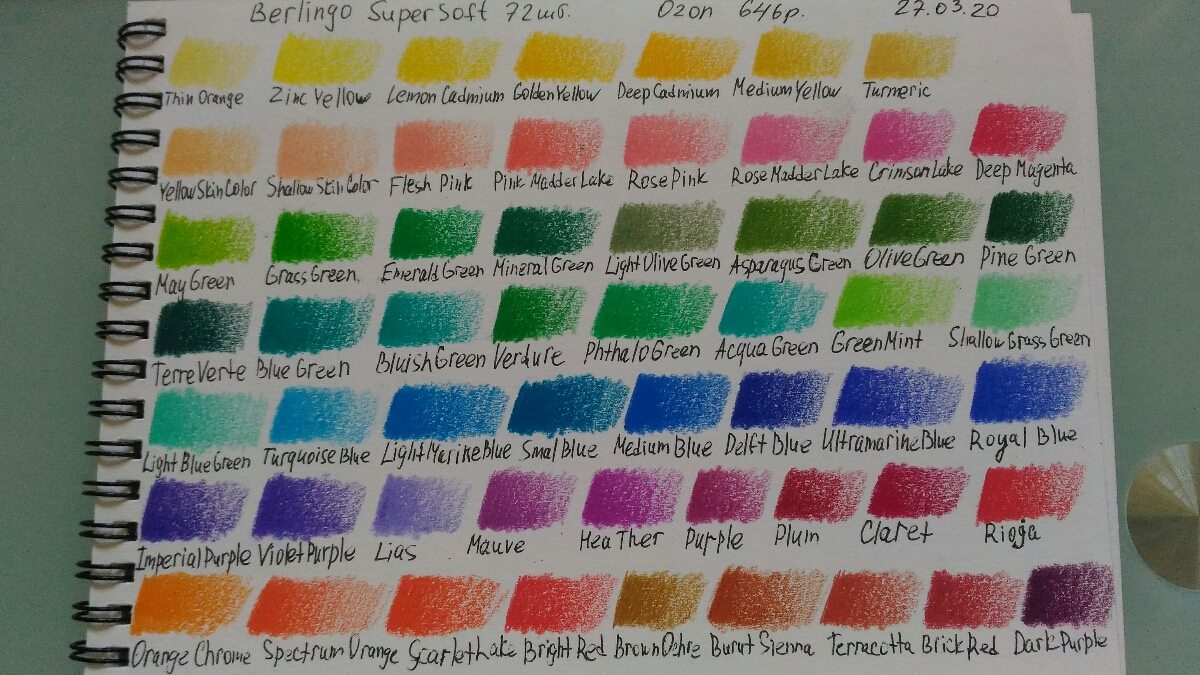 Berlingo SuperSoft 72шт. Ozon 646р. 27.03.20
Thin Orange Zinc Yellow Lemon Cadmium Golden Yellow Deep Cadmium Medium Yellow Turmeric
Yellow Skin Color Shallow Skin Color Flesh Pink Pink Madder Lake Rose Pink Rose Madder Lake Crimson Lake Deep Magenta
May Green Grass Green Emerald Green Mineral Green Light Olive Green Asparagus Green Olive Green Pine Green
Terre Verte Blue Green Bluish Green Verdure Phthalo Green Acqua Green Green Mint Shallow Grass Green
Light Blue Green Turquoise Blue Light Marine Blue Smal Blue Medium Blue Delft Blue Ultramarine Blue Royal Blue
Imperial Purple Violet Purple Lias Mauve Hea Ther Purple Plum Claret Rioja
Orange Chrome Spectrum Orange Scarlet Lake Bright Red Brown Ochre Burut Sienna Terracotta Brick Red Dark Purple